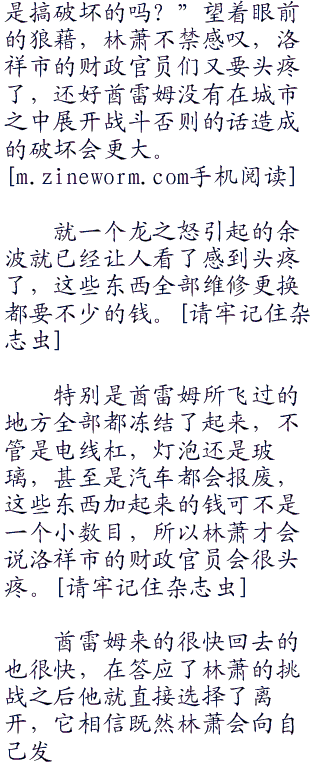 是搞破坏的吗？”望着眼前
的狼藉，林萧不禁感叹，洛
祥市的财政官员们又要头疼
了，还好酋雷姆没有在城市
之中展开战斗否则的话造成
的破坏会更大。
[m.zineworm.com手机阅读]
就一个龙之怒引起的余
波就已经让人看了感到头疼
了，这些东西全部维修更换
都要不少的钱。[请牢记住杂
志虫]
特别是酋雷姆所飞过的
地方全部都冻结了起来，不
管是电线杠，灯泡还是玻
璃，甚至是汽车都会报废，
这些东西加起来的钱可不是
一个小数目，所以林萧才会
说洛祥市的财政官员会很头
疼。[请牢记住杂志虫]
酋雷姆来的很快回去的
也很快，在答应了林萧的挑
战之后他就直接选择了离
开，它相信既然林萧会向自
己发